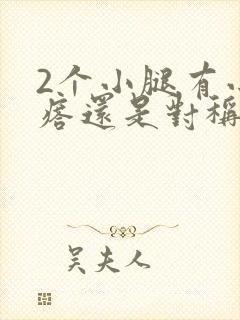 2个小腿有
痞還是對稱
吴夫人